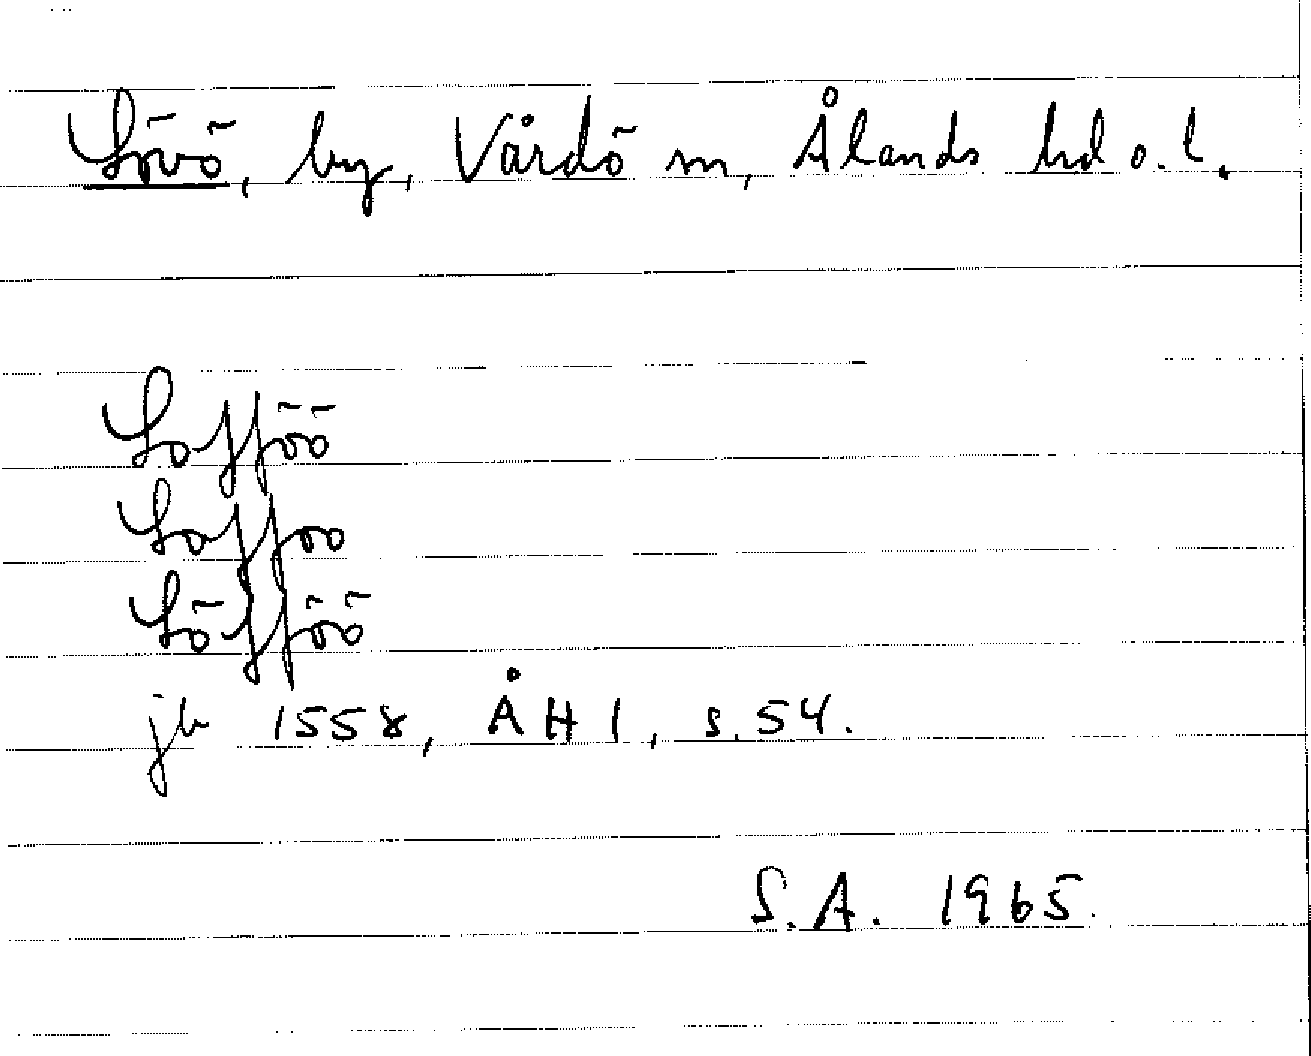 Lövö, by, Vårdö sn, Ålands hd o. l.
Lofföö
Loffoo
Löfföö
jb 1558, ÅH 1, s. 54.
S.A. 1965.